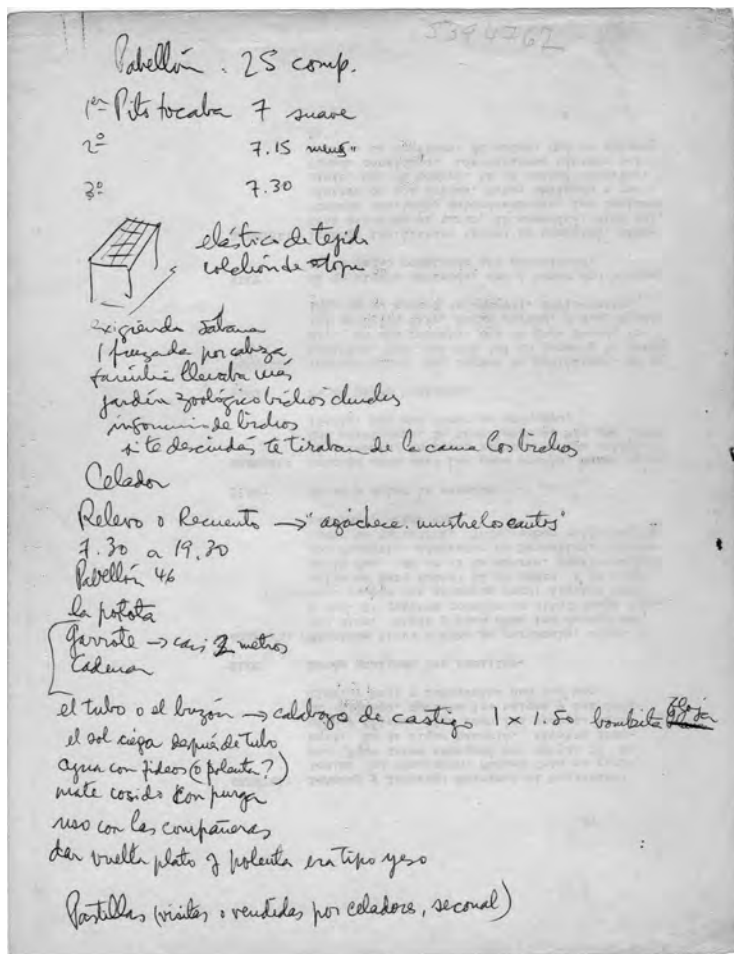 5394762
Pabellón . 25 comp.
1er Pito tocaba 7 suave
2º 7.15 menos
3º 7.30
elástico de tejido
colchón de estopa
exigiendo sábana
1 frazada por cabeza
familia llevaba más
jardín zoológico bichos
insomnio de bichos
si te descuidás te tiraban de la cama los bichos
Celador
Relevo o Recuento → "agáchece. muestrelos cantos"
7.30 a 19.30
Pabellón 46
la patota
Garrote → casi 2 metros
Cadenas
el tubo o el buzón → calabozo de castigo 1 x 1.50 bombita
el sol ciega después de tubo
agua con fideos (o polenta?)
mate cosido con purga
uso con las compañeras
dar vuelta plato y polenta era tipo yeso
Pastillas (visitas o vendidas por celadores, seconal)